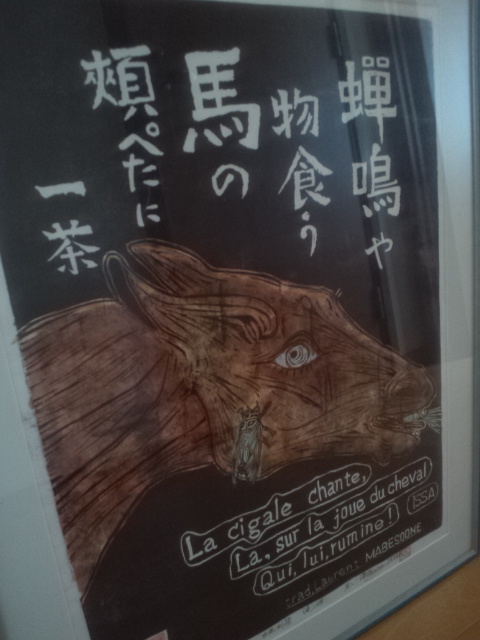 蟬鳴や
物食う
馬の
頰ぺたに
一茶
La cigale chante,
La, sur la joue du cheval
Qui, lui, rumine!
ISSA
trad. Laurent MABESOONE